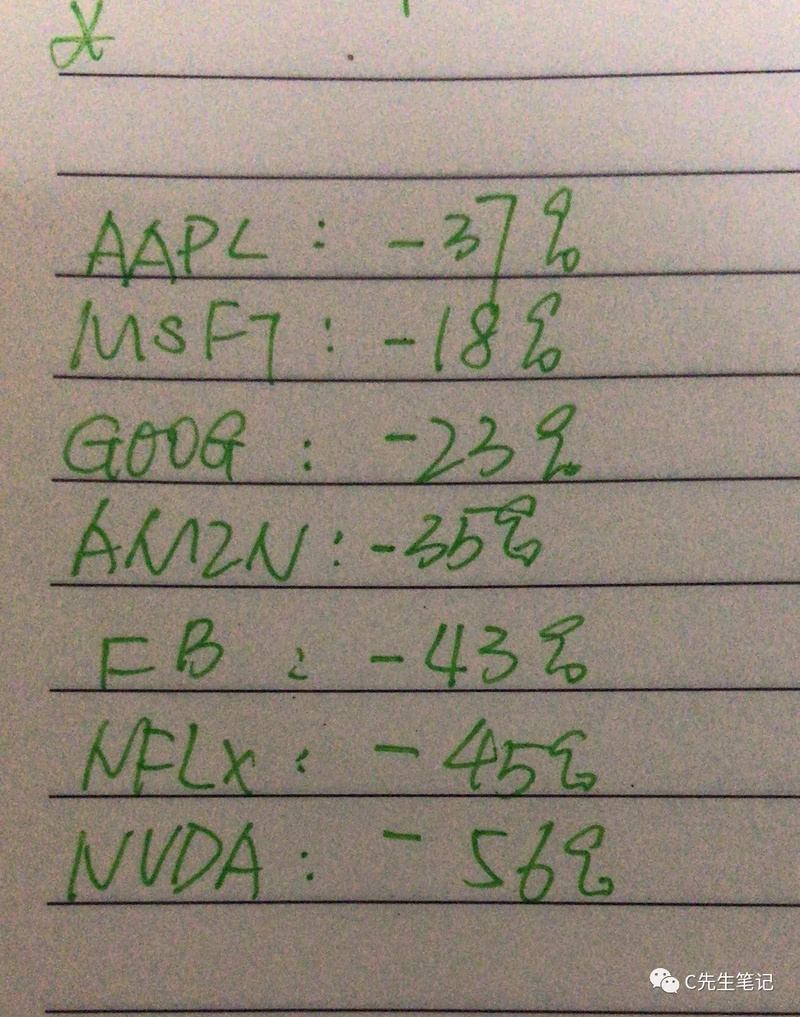 AAPL : -37%
MSFT : -18%
GOOG : -23%
AMZN : -35%
FB : -43%
NFLX : -45%
NVDA : -56%
C先生笔记